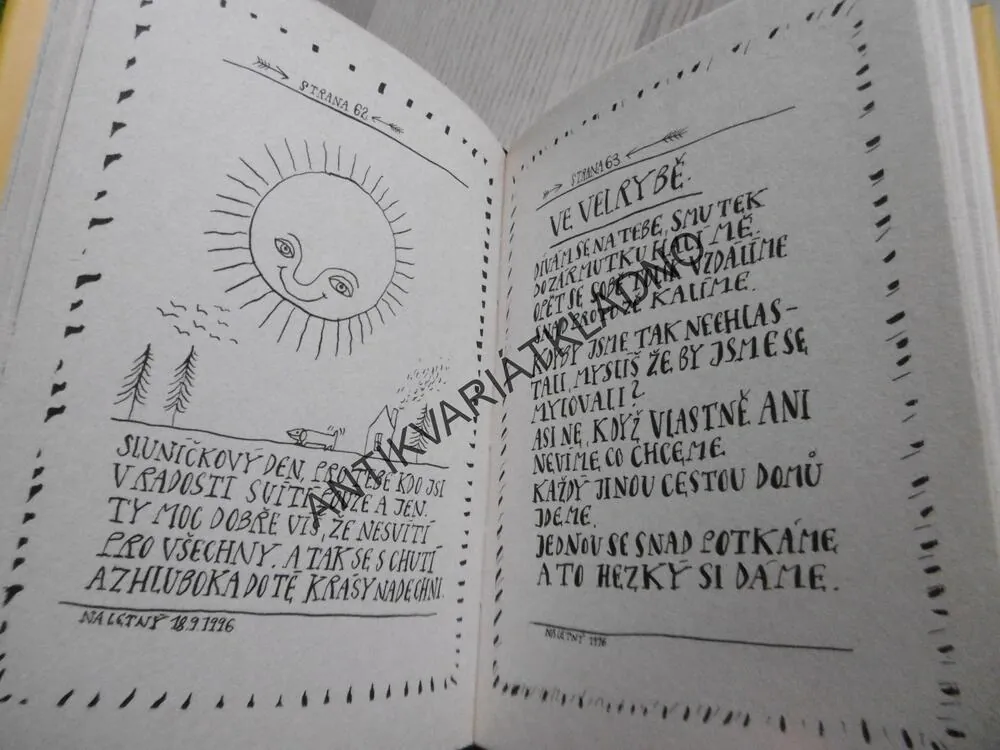 STRANA 62
SLUNÍČKOVÝ DEN, PRO TEBE KDO JSI
V RADOSTI SVÍTÍ A JEN.
TY MOC DOBŘE VÍŠ, ŽE NESVÍTÍ
PRO VŠECHNY. A TAK SE S CHUTÍ
A ZHLUBOKA DO TÉ KRÁSY NADECHNI.
NA LETNÝ 18.9.1996
STRANA 63
VE VELRYBĚ.
DÍVÁM SE NA TEBE, SMUTEK
DO ZÁRMUTKU HALÍ MĚ.
OPĚT SE SOBĚ VZDÁLÍME
SNAD PROTO ŽE KALÍME.
KDYBY JSME TAK NECHLAS-
TALI, MYSLÍŠ ŽE BY JSME SE
MYLOVALI?
ASI NE, KDYŽ VLASTNĚ ANI
NEVÍME CO CHCEME.
KAŽDÝ JINOU CESTOU DOMŮ
JDEME.
JEDNOU SE SNAD POTKÁME
A TO HEZKÝ SI DÁME.
NA LETNÝ 1996
ANTIKVARIÁTKLADNO